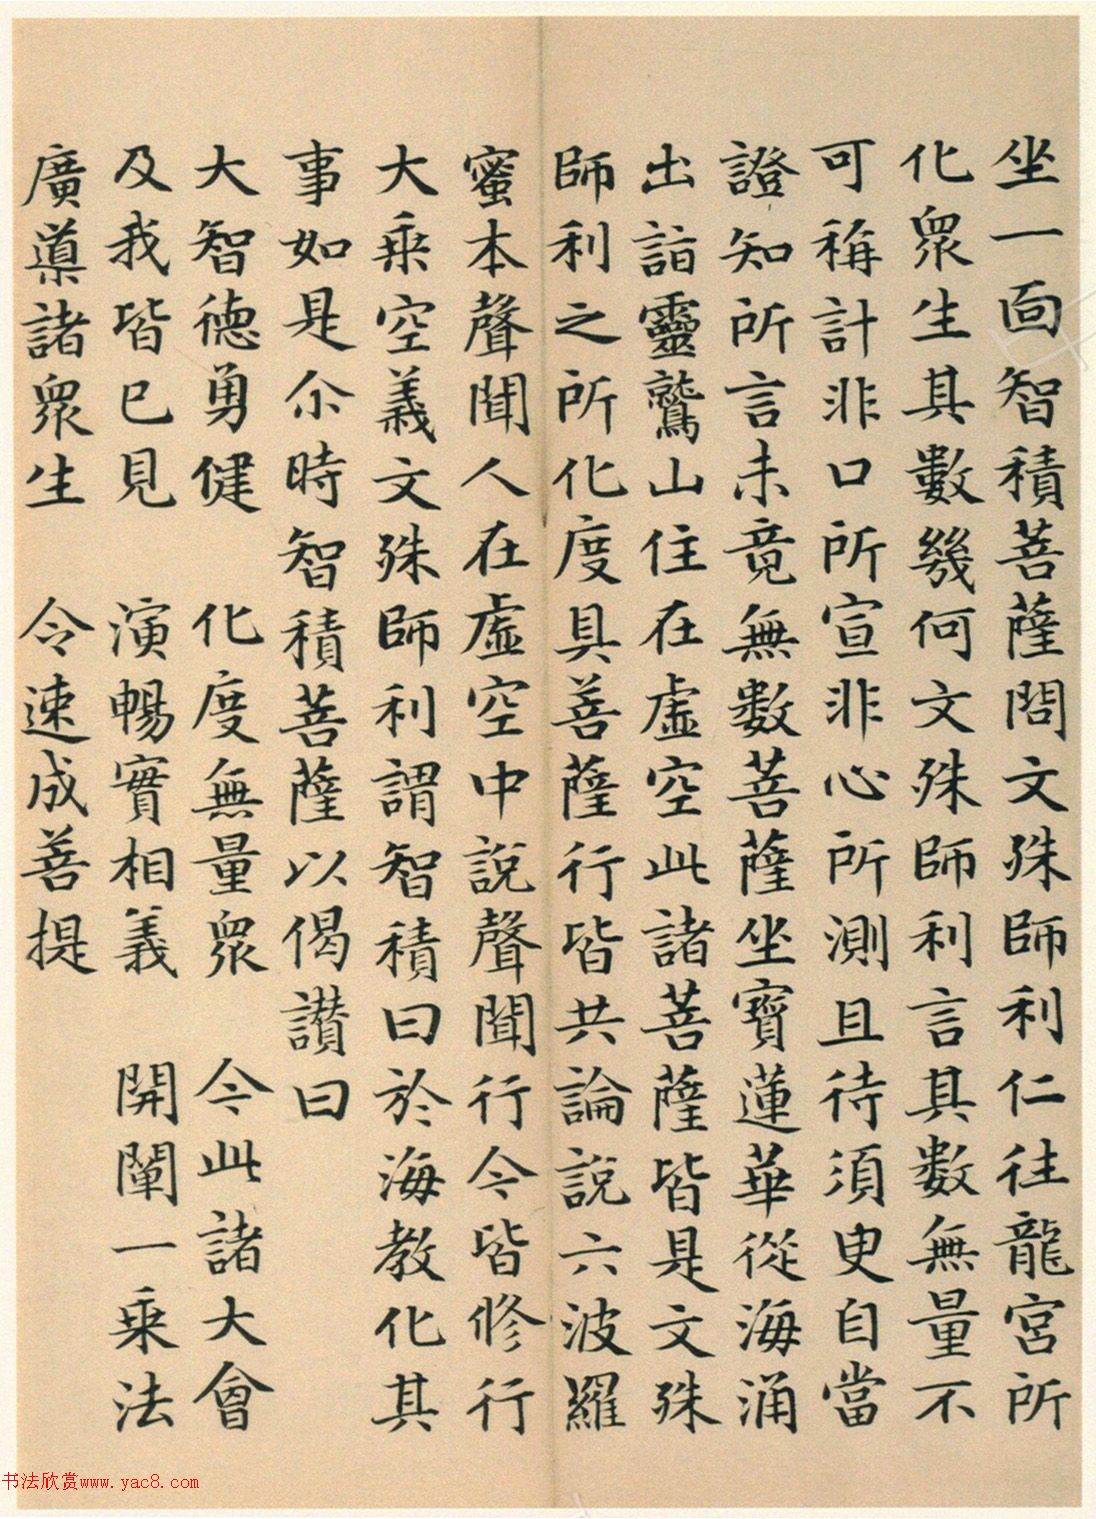 坐一面智積菩薩問文殊師利仁往龍宮所
化眾生其數幾何文殊師利言其數無量不
可稱計非口所宣非心所測且待須臾自當
證知所言未竟無數菩薩坐寶蓮華從海涌
出詣靈鷲山住在虛空此諸菩薩皆是文殊
師利之所化度具菩薩行皆共論說六波羅
蜜本聲聞人在虛空中說聲聞行今皆修行
大乘空義文殊師利謂智積曰於海教化其
事如是尒時智積菩薩以偈讚曰
大智德勇健 化度無量眾 今此諸大會
及我皆已見 演暢實相義 開闡一乘法
廣導諸眾生 令速成菩提
书法欣赏www.yac8.com